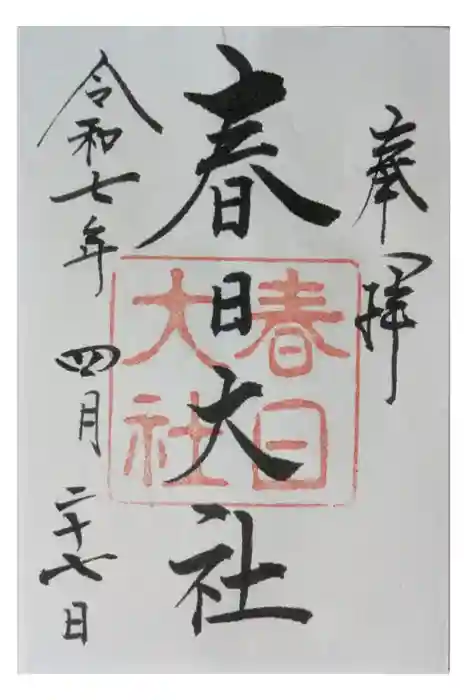 奉拝
春日大社
春日大社
令和七年四月二十七日